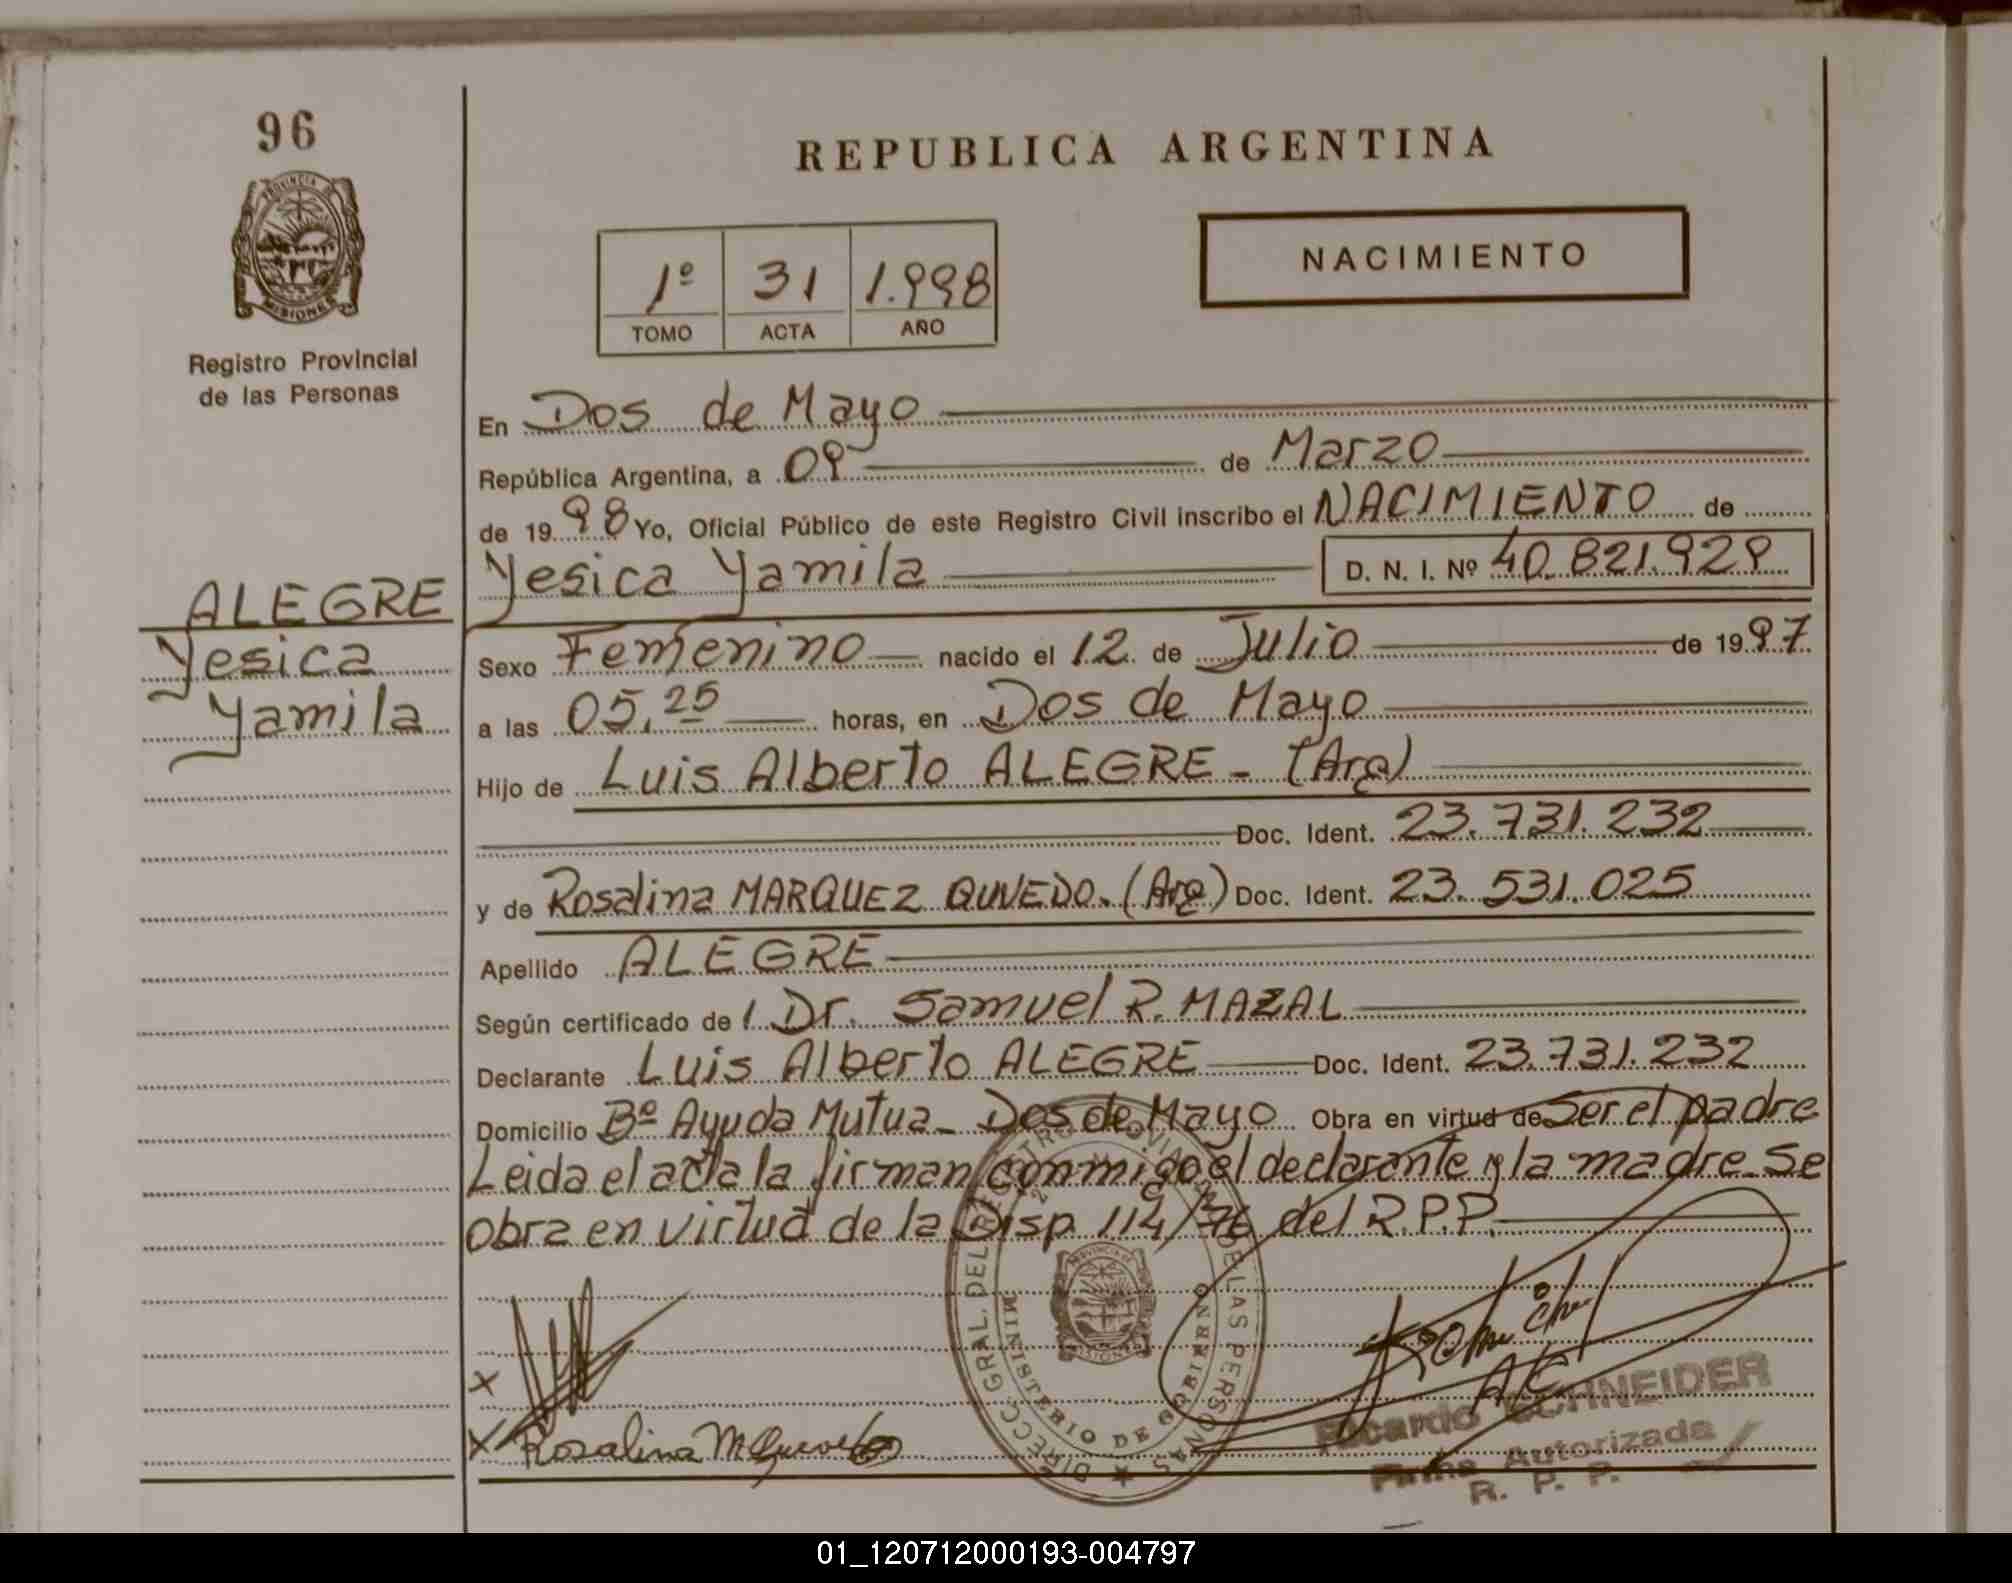 96
PROVINCIA DE
MISIONES
Registro Provincial
de las Personas
ALEGRE
Yesica
Yamila
REPUBLICA ARGENTINA
1º 31 1.998
TOMO ACTA AÑO
NACIMIENTO
En Dos de Mayo
República Argentina, a 09 de Marzo
de 1998 Yo, Oficial Público de este Registro Civil inscribo el NACIMIENTO de
Yesica Yamila D. N. I. Nº 40.821.929
Sexo Femenino nacido el 12 de Julio de 1997
a las 05,25 horas, en Dos de Mayo
Hijo de Luis Alberto ALEGRE - (Arg)
Doc. Ident. 23.731.232
y de Rosalina MARQUEZ QUVEDO. (Arg) Doc. Ident. 23.531.025
Apellido ALEGRE
Según certificado de / Dr. Samuel R. MAZAL
Declarante Luis Alberto ALEGRE Doc. Ident. 23.731.232
Domicilio Bº Ayuda Mutua - Dos de Mayo Obra en virtud de Ser el padre
Leida el acta la firman conmigo el declarante y la madre. Se
obra en virtud de la Disp. 114/76 del R.P.P.
DIRECC. GRAL. DEL REGISTRO PROVINCIAL DE LAS PERSONAS
MINISTERIO DE GOBIERNO
X
X Rosalina M
Ricardo SCHNEIDER
Firma Autorizada
R. P. P.
01_120712000193-004797